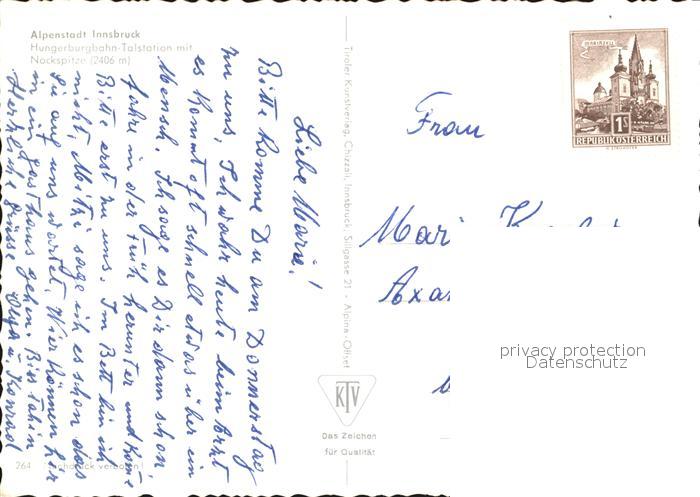 Alpenstadt Innsbruck
Hungerburgbahn-Talstation mit
Nockspitze (2406 m)
Liebe Marie!
Bitte komme Du am Donnerstag
zu uns, Ich wahr heute beim Arzt
es kommt oft schnell etwas über ein
Mensch. Ich sage es Dir dann schon
fahre in der früh herunter und komme
Bitte erst zu uns. Im Bett bin ich
nicht, Mitzi sage ich es schon das
Sie auf uns wartet, Wier können hir
in ein gasthaus gehen. Bis tahin
Herzliche Grüsse Olga u. Kind
Tiroler Kunstverlag Chizzali, Innsbruck, Sillgasse 21 - Alpina-Offset
KTV
Das Zeichen
für Qualität
264
Nachdruck verboten!
MARIAZELL
1S
REPUBLIK ÖSTERREICH
Frau
Mari
Axa
privacy protection
Datenschutz